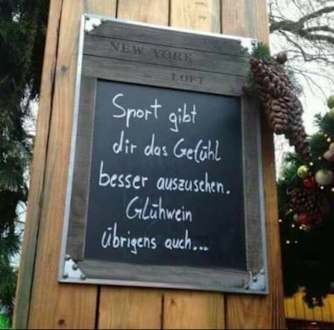 NEW YORK
LOFT
Sport gibt
dir das Gefühl
besser auszusehen.
Glühwein
übrigens auch...